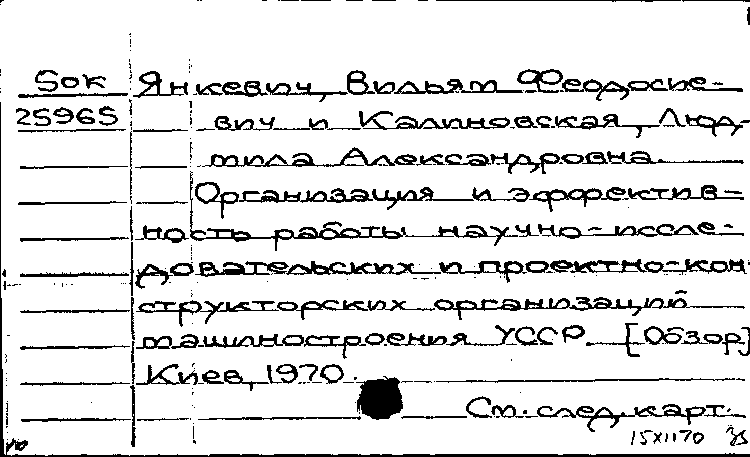 Sок Янкевич, Вильям Феодосие-
25965 вич и Калиновская, Люд-
мила Александровна.
Организация и эффектив-
ность работы научно-иссле-
довательских и проектно-кон-
структорских организаций
машиностроения УССР. [Обзор]
Киев, 1970.
См. след. карт.
15XII70